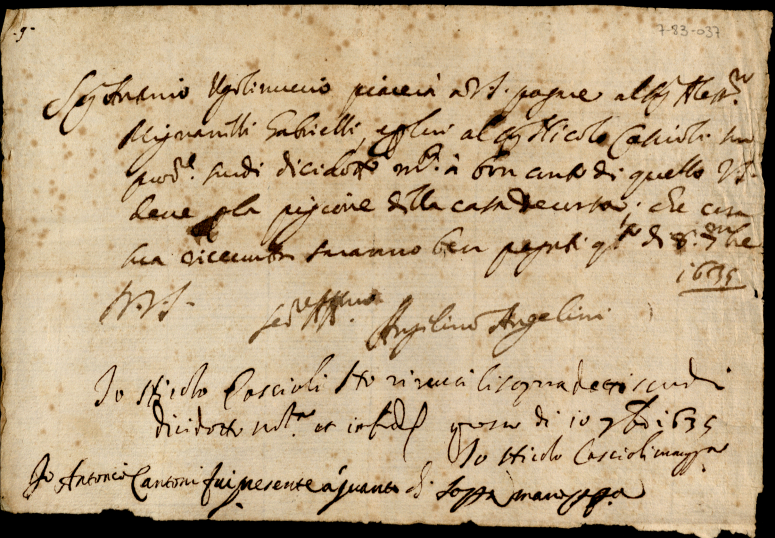 -9-
7-83-037
Sig. Antonio Ugolinuccio piacerà a V.S. pagare al Sig. Aless.ro
Mignanelli Gabrielli, e per lui al Sig. Nicolo Cascioli suo
proc.re scudi dicidotto m.ta à bon conto di quello V.S.
deve p la pigione della casa che con
sua ricevuta saranno ben pagati q.to di 8. 9mbre
1635
D. V. S.
Ser.re Aff.mo
Angelino Angelini
Io Nicolo Cascioli Ho ricevuti li sopradetti scudi
dicidotto m.ta et in fede questo di 10 9bre 1635
Io Nicolo Cascioli mano ppa
Io Antonio Cantoni fui presente à quanto di sopra mano ppa